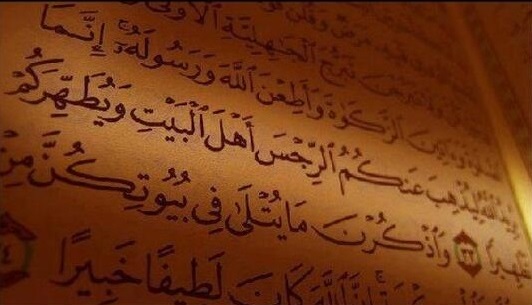 تَبَرُّجَ ٱلْجَٰهِلِيَّةِ ٱلْأُولَىٰ
ٱلزَّكَوٰةَ وَأَطِعْنَ ٱللَّهَ وَرَسُولَهُۥٓ ۚ إِنَّمَا
ٱللَّهُ لِيُذْهِبَ عَنكُمُ ٱلرِّجْسَ أَهْلَ ٱلْبَيْتِ وَيُطَهِّرَكُمْ
تَطْهِيرًا ٣٣ وَٱذْكُرْنَ مَا يُتْلَىٰ فِى بُيُوتِكُنَّ مِنْ
إِنَّ ٱللَّهَ كَانَ لَطِيفًا خَبِيرًا